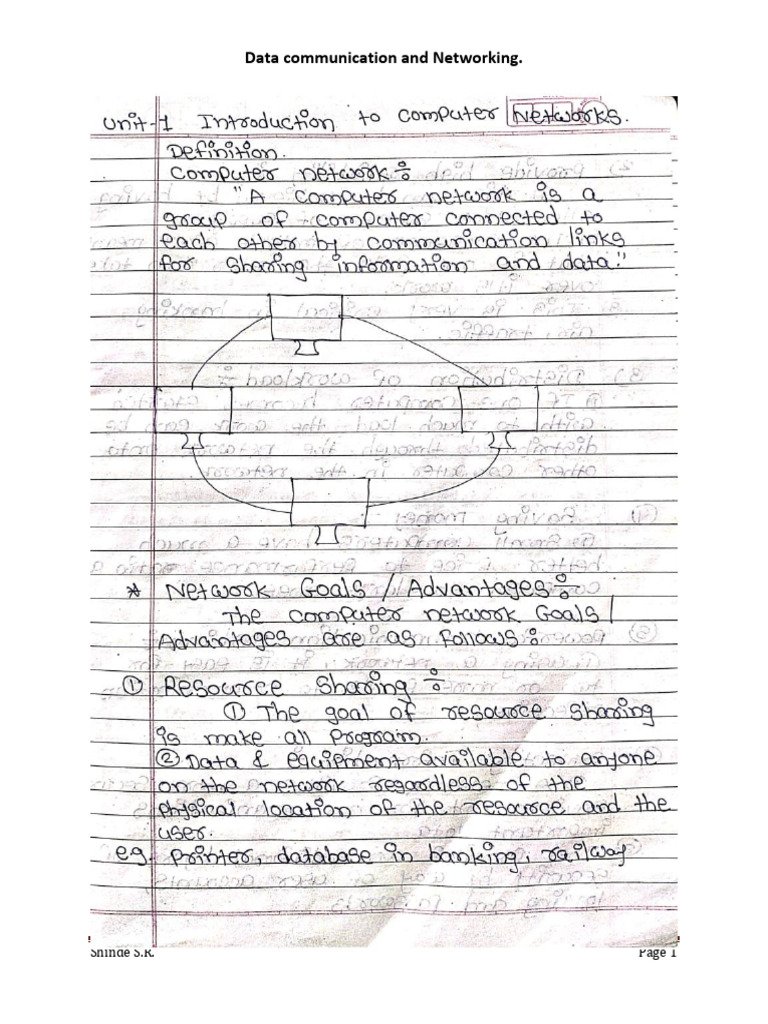 Data communication and Networking.
Unit-1 Introduction to Computer Networks.
Definition.
Computer network :-
"A computer network is a
group of computer connected to
each other by communication links
for sharing information and data."
* Network Goals / Advantages :-
The computer network Goals /
Advantages are as follows :
① Resource Sharing :-
① The goal of resource sharing
is make all Program.
② Data & equipment available to anyone
on the network regardless of the
physical location of the resource and the
user.
eg. Printer, database in banking, railway
Shinde S.R. Page 1